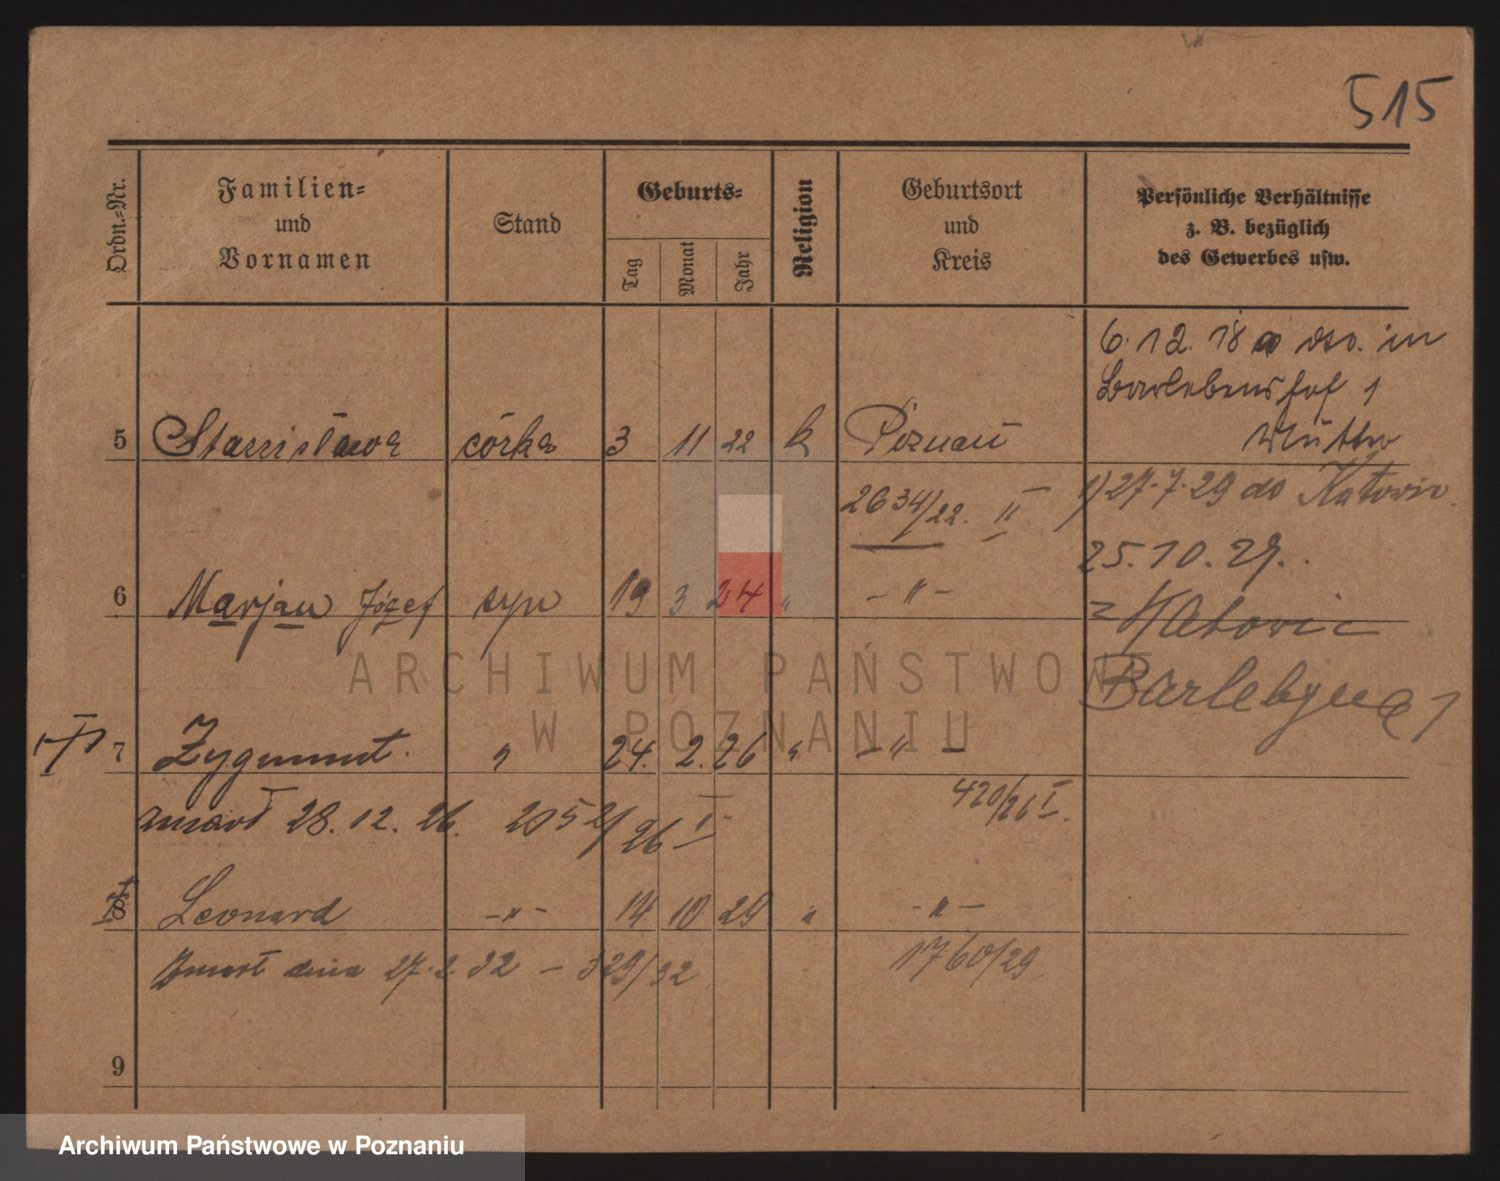 515
Ordn.-Nr.
Familien-
und
Vornamen
Stand
Geburts-
Tag
Monat
Jahr
Religion
Geburtsort
und
Kreis
Persönliche Verhältnisse
z. B. bezüglich
des Gewerbes usw.
6. 12. 18 in
Barlebenshof 1
Mutter
5 Stanisława córka 3 11 22 k Poznań
2634/22. II
1) 27.7.29 do Katowic
25.10.29.
6 Marjan Józef syn 19 3 24 " - " -
z Katowic
Barlebena 1
7 Zygmunt. " 24. 2. 26 " - " -
zmarł 28. 12. 26. 2052/26 I
420/26 I.
8 Leonard - " - 14. 10 29 " - " -
Zmarł dnia 27. 2. 32 - 329/32
1760/29
9
ARCHIWUM PAŃSTWOWE
W POZNANIU
Archiwum Państwowe w Poznaniu